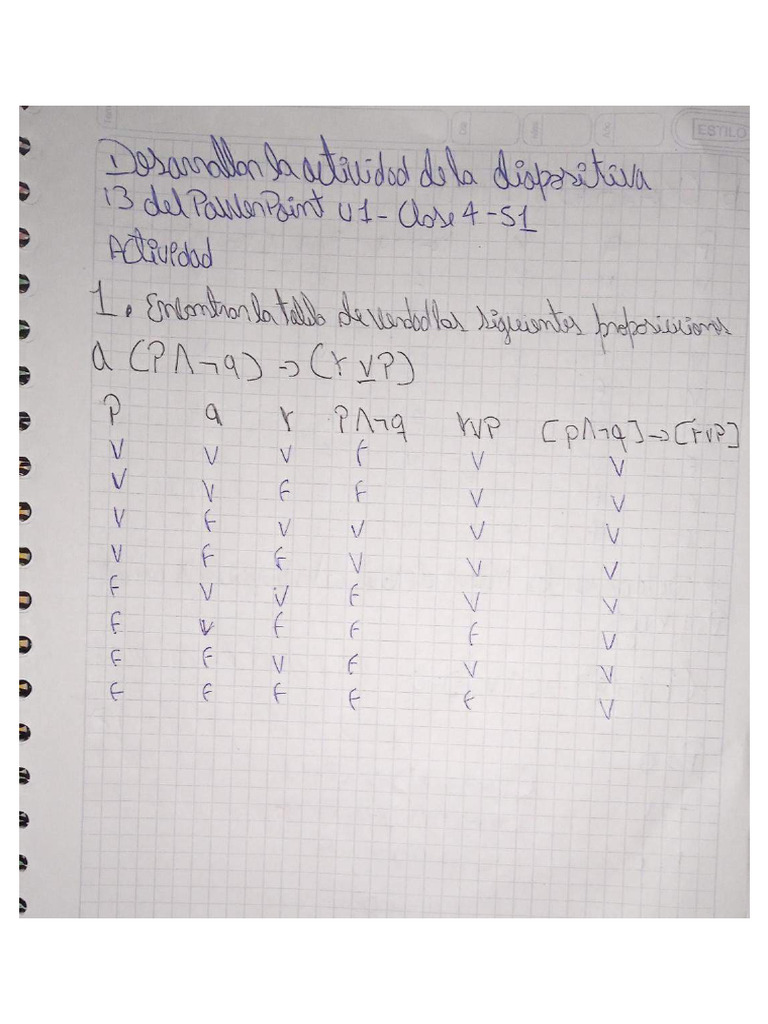 ESTILO
Desarrollar la actividad de la diapositiva
13 del PowerPoint U1 - Clase 4 - S1
Actividad
1. Encontrar la tabla de verdad las siguientes proposiciones
a (P ∧ ¬q) -> (r ⊻ P)
P q r P∧¬q r∨P [p∧¬q] -> [r∨P]
V V V F V V
V V F F V V
V F V V V V
V F F V V V
F V V F V V
F V F F F V
F F V F V V
F F F F F V